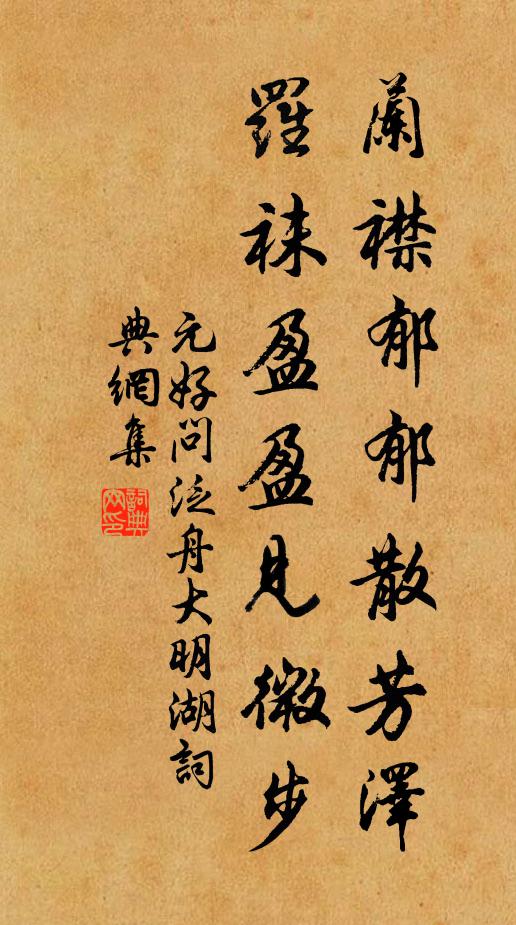 蘭襟郁郁散芳澤
羅襪盈盈見微步
元好問泛舟大明湖詞
典網集
詞典網印